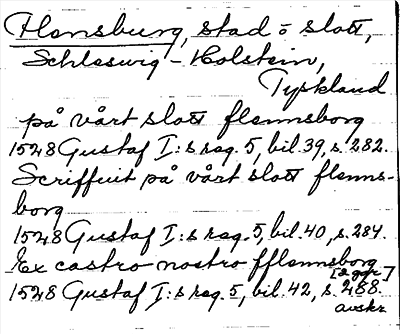 Flensburg, stad o slott,
Schleswig-Holstein,
Tyskland
på vårt slott flennsborg
1528 Gustaf I:s reg. 5, bil. 39, s. 282.
Scriffuit på vårt slott flenns-
borg
1528 Gustaf I:s reg. 5, bil. 40, s. 284.
Ex castro nostro fflennsborg
[2 ggr]
1528 Gustaf I:s reg. 5, bil. 42, s. 288.
avskr.